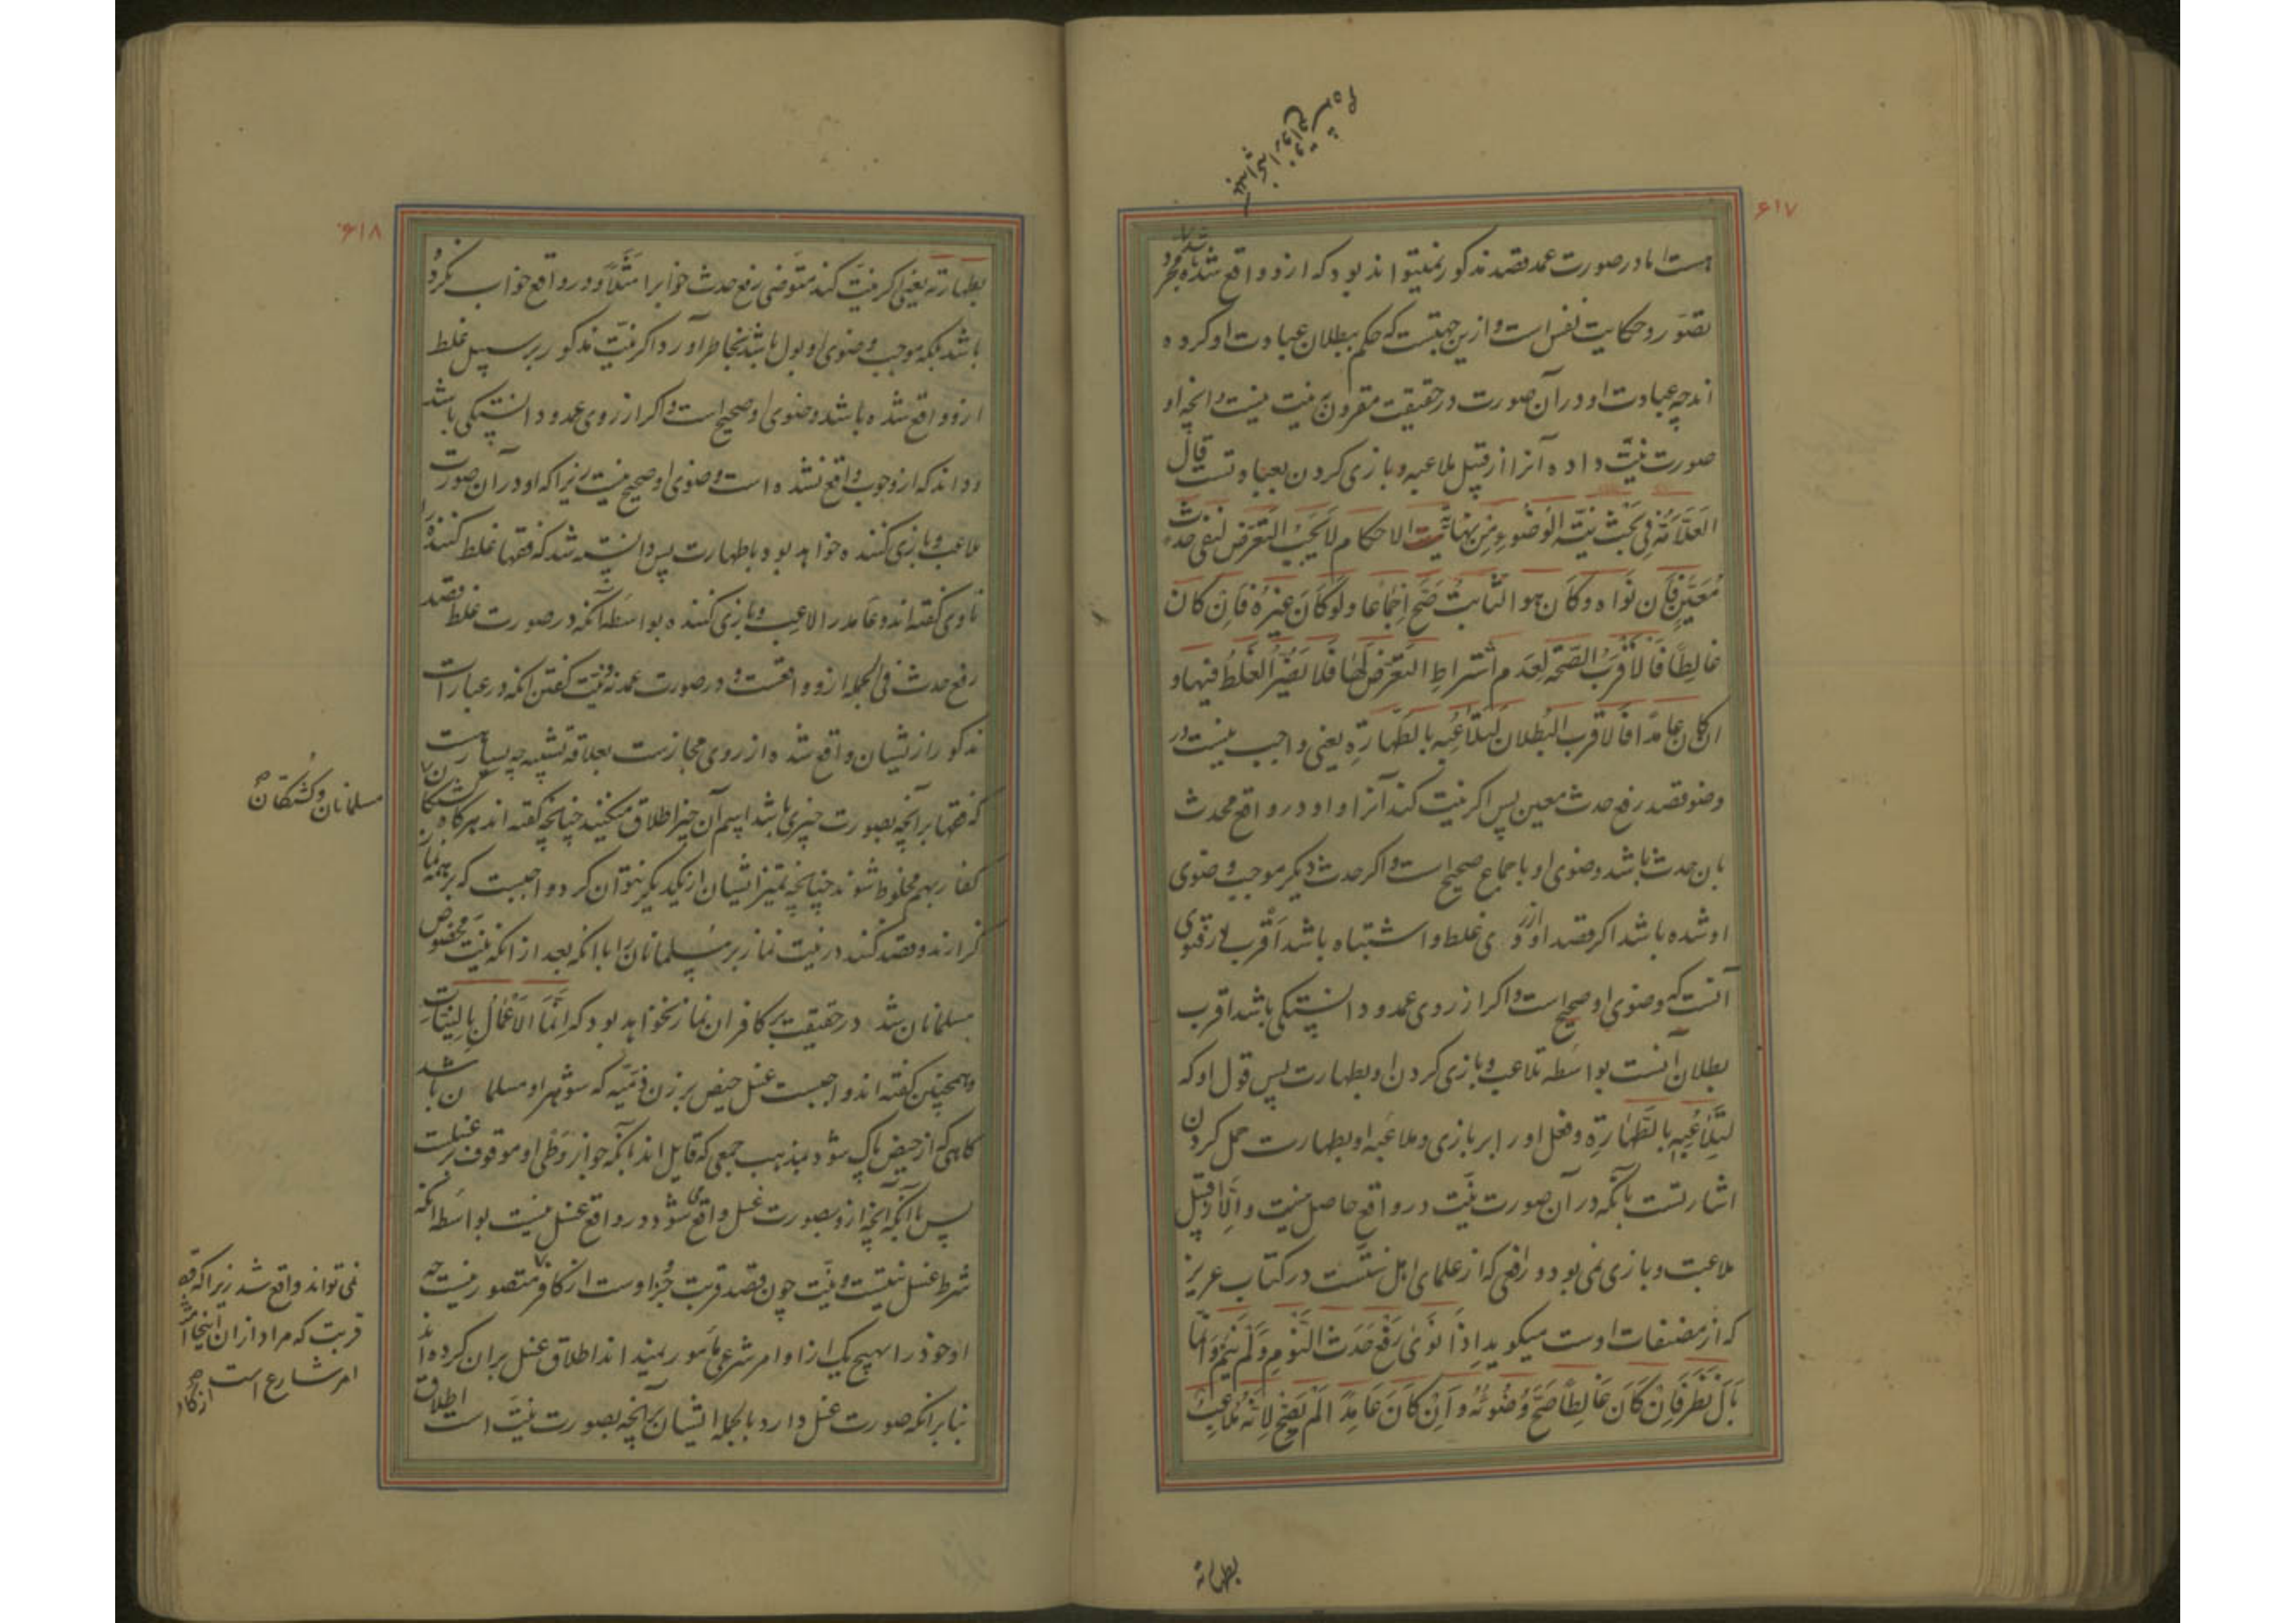 ۶۱۷
هست اما در صورت عمد قصد مذکور نمیتواند بود که ازو واقع شده باشد مجرد
تصور و حکایت نفس است و ازین جهتست که حکم ببطلان عبادت او کرده
اند چه عبادت او در آن صورت در حقیقت مقرون به نیت نیست و آنچه او
صورت نیت داده آنرا از قبیل ملاعبه و بازی کردن بعبادتست قال
العَلّامَةُ فی بَحْث نِیَّة الوُضُوءِ مِن نهایَة الاحکام لا یَجِبُ التَّعَرُّض لنفی حدث
مُعَیَّنٍ فَاِن نَوَاه وَکَانَ هو الثابتُ صَحَّ اِجْماعا وَلَو کَانَ غیرَهُ فَاِن کان
غالِطًا فَالاَقْرَبُ الصّحّة لِعَدَمِ اشتراطِ التعَرّض لَها فَلا یَضُرُّ الغَلَطُ فیها و
ان کان عامدًا فالاقرب البُطلان لِتَلاعُبِهِ بالطَّهارَةِ یعنی واجب نیست در
وضو قصد رفع حدث معین پس اگر نیت کند آنرا و او در واقع محدث
بان حدث باشد وضوی او باجماع صحیح است و اگر حدث دیگر موجب وضوی
او شده باشد اگر قصد او از روی غلط و اشتباه باشد اقرب در فتوی
آنست که وضوی او صحیح است و اگر از روی عمد و دانستگی باشد اقرب
بطلان آنست بواسطه تلاعب و بازی کردن او بطهارت پس قول او که
لِتَلاعُبِهِ بالطَّهارَةِ و فعل او را بر بازی و ملاعبه او بطهارت حمل کردن
اشارتست بآنکه در آن صورت نیّت در واقع حاصل نیست و اِلّا از قبیل
ملاعبت و بازی نمی بود و رافعی که از علمای اهل سنّتست در کتاب عزیز
که از مصنفات اوست میگوید اِذا نَوَیٰ رَفْعَ حَدَث النَّومِ وَلَم یَنَمْ وَاِنَّما
بَالَ نُظِرَ فَاِنْ کَانَ غَالِطاً صَحَّ وُضُوئُهُ وَ اِنْ کَانَ عَامِدًا لَمْ یَصِحّ لِاَنَّهُ مُلاعِبٌ
بطهارته
۶۱۸
بطهارته یعنی اگر نیّت کند متوضی رفع حدث خوابرا مثلًا و در واقع خواب نکرده
باشد بلکه موجب وضوی او بول باشد بخاطر آورد اگر نیّت مذکور بر سبیل غلط
ازو واقع شده باشد وضوی او صحیح است و اگر از روی عمد و دانستگی باشد
و داند که از وجوب واقع نشده است وضوی او صحیح نیست زیرا که او در آن صورت
ملاعب و بازی کننده خواهد بود باطهارت پس دانسته شد که فقها غلط کننده را
ناوی گفته اند و عامد را لاعب و بازی کننده بواسطه آنکه در صورت غلط قصد
رفع حدث فی الجمله ازو واقعست و در صورت عمد نه و نیّت گفتن آنکه در عبارات
مذکور از نشیان واقع شده از روی مجازست بعلاقه تشبیه چه بسیارست
که فقها بر آنچه بصورت چیزی باشد اسم آن چیز اطلاق میکنند چنانچه گفته اند هرگاه کشتگان
کفار بهم مخلوط شوند چنانچه تمیز ایشان از یکدیگر نتوان کرد واجبست که بر همه نماز
گزارند و قصد کنند در نیت نماز بر مسلمانان را با آنکه بعد از آنکه نیّت مخصوص
مسلمانان شد در حقیقت بر کافران نماز نخواهد بود که اِنَّمَا الاَعْمَالُ بِالنِّیّاتِ
و همچنین گفته اند واجبست غسل حیض بر زن ذمّیّه که شوهر او مسلمان باشد
گاهی که از حیض پاک شود بمذهب جمعی که قایل اند بآنکه جواز وطی او موقوف بر غسلست
پس باآنکه آنچه ازو بصورت غسل واقع میشود در واقع غسل نیست بواسطه آنکه
شرط غسل نیتست و نیّت چون قصد قربت جزو اوست از کافر متصور نیست چه
او خود را بهیچ یک از اوامر شرعی مأمور نمیداند اطلاق غسل بران کرده اند
بنا برانکه صورت غسل دارد بالجمله ایشان بر آنچه بصورت نیّت است اطلاق
مسلمانان و کشتگان
نمی تواند واقع شد زیرا که قصد
قربت که مراد از ان اینجا امتثال
امر شارع است از کافر